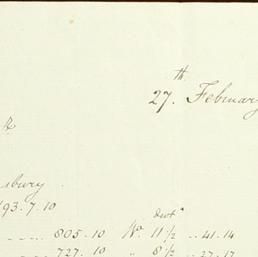 27th. February
&
sbury
193.7.10
805.10 No. 11 1/2 .. 41.14
727.10 " 8 1/2 .. 27.17